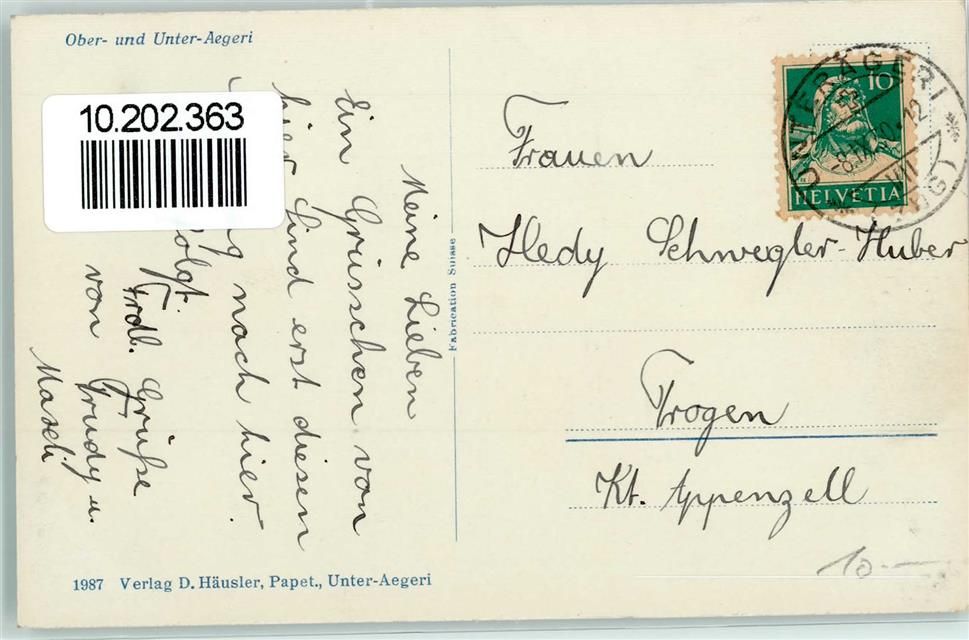 Ober- und Unter-Aegeri
10.202.363
Meine Lieben
Ein Grüsschen von
hier. Sind erst diesen
nach hier
folgt.
Frdl. Grüße
von Trudy u.
Maseli
Fabrication Suisse
1987 Verlag D. Häusler, Papet., Unter-Aegeri
10
HELVETIA
UNTERÄGERI
(ZUG)
Frauen
Hedy Schwegler-Huber
Trogen
Kt. Appenzell
10.--